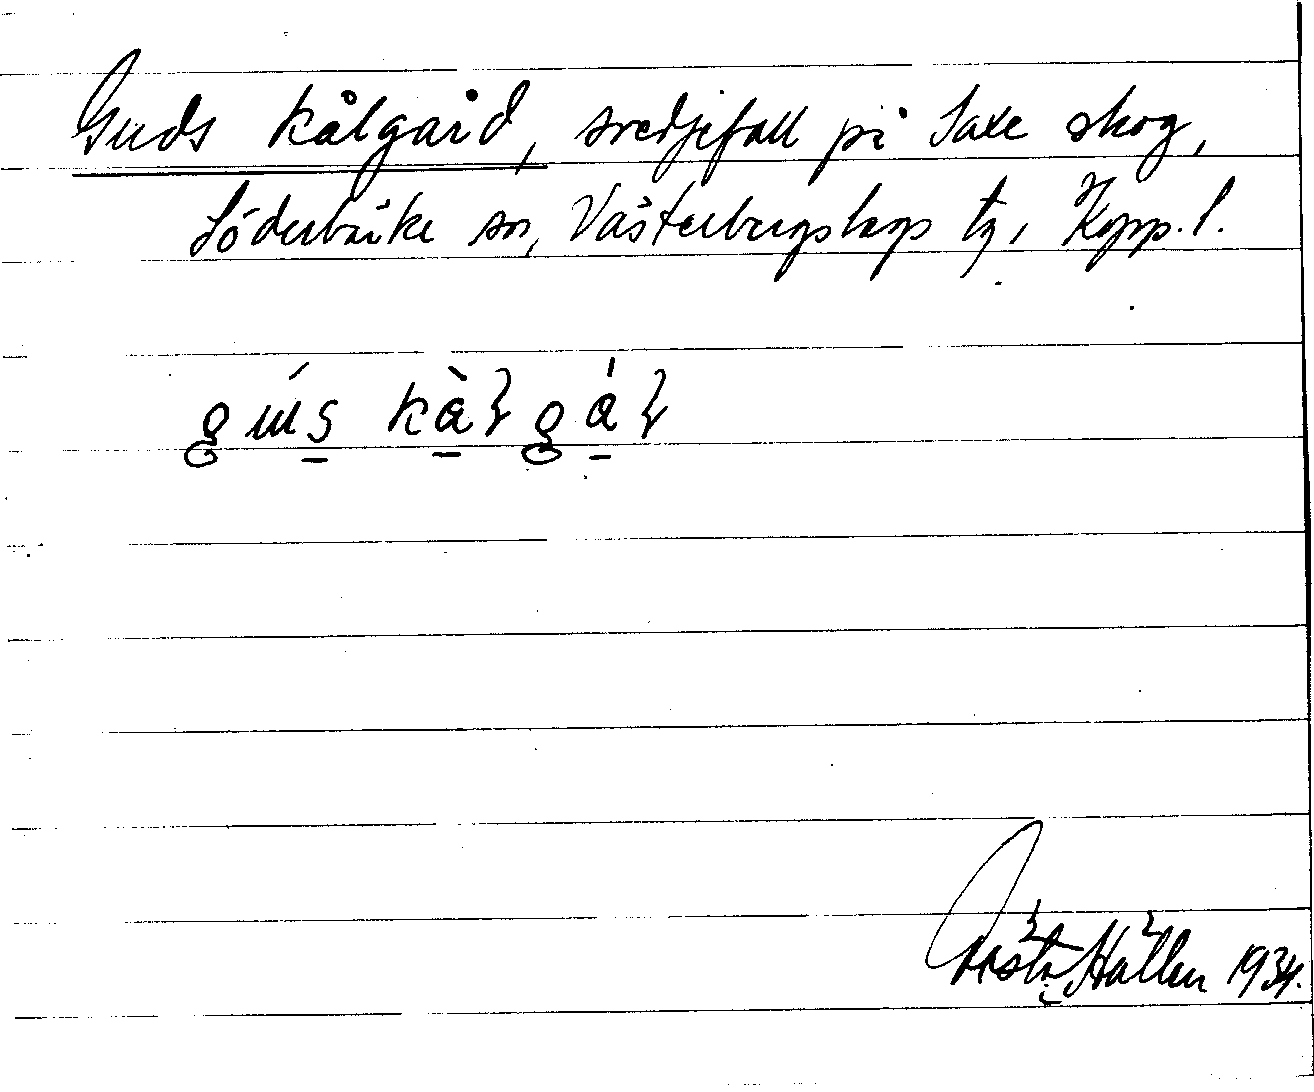 Guds kålgård, svedjefall på Saxe skog,
Söderbärke sn, Västerbergslags tg, Kopp. l.
Gösta Hallén 1934.